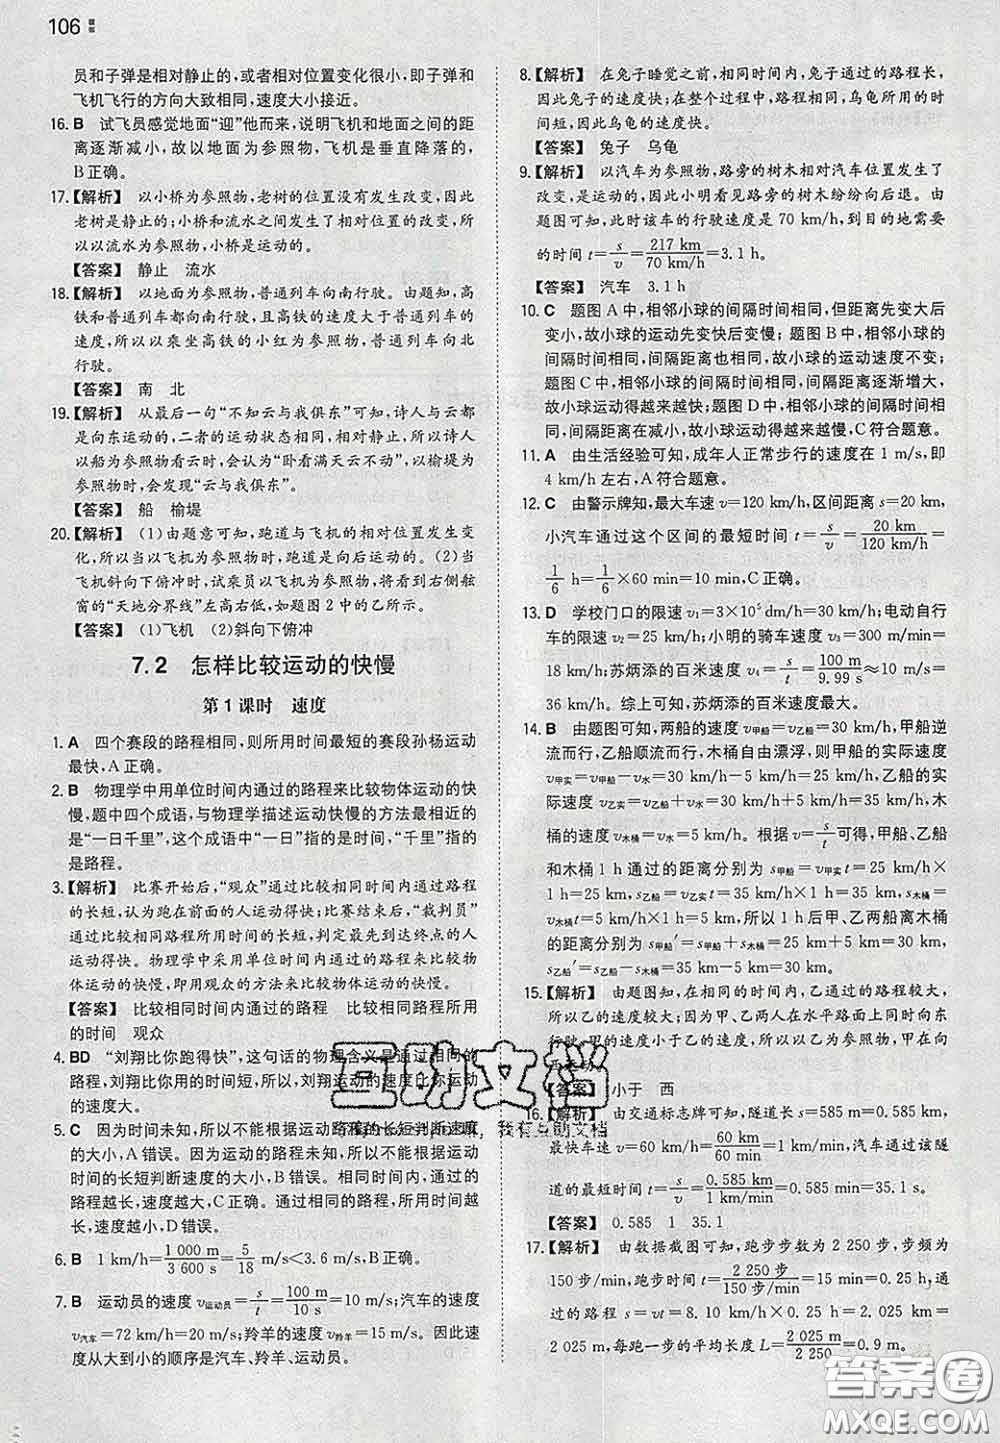 106
员和子弹是相对静止的,或者相对位置变化很小,即子弹和
飞机飞行的方向大致相同,速度大小接近。
16. B 试飞员感觉地面“迎”他而来,说明飞机和地面之间的距
离逐渐减小,故以地面为参照物,飞机是垂直降落的。
B正确。
17.【解析】 以小桥为参照物,老树的位置没有发生改变,因此
老树是静止的;小桥和流水之间发生了相对位置的改变,所
以以流水为参照物,小桥是运动的。
【答案】 静止 流水
18.【解析】 以地面为参照物,普通列车向南行驶。由题知,高
铁和普通列车都向南行驶,且高铁的速度大于普通列车的
速度,所以以乘坐高铁的小红为参照物,普通列车向北
行驶。
【答案】 南 北
19.【解析】 从最后一句“不知云与我俱东”可知,诗人与云都
是向东运动的,二者的运动状态相同,相对静止,所以诗人
以船为参照物看云时,会认为“卧看满天云不动”,以榆堤为
参照物时,会发现“云与我俱东”。
【答案】 船 榆堤
20.【解析】 (1)由题意可知,跑道与飞机的相对位置发生变
化,所以当以飞机为参照物时,跑道是向后运动的。(2)当
飞机斜向下俯冲时,试乘员以飞机为参照物,将看到右侧舷
窗的“天地分界线”左高右低,如题图2中的乙所示。
【答案】 (1)飞机 (2)斜向下俯冲
7.2 怎样比较运动的快慢
第1课时 速度
1. A 四个赛段的路程相同,则所用时间最短的赛段孙杨运动
最快,A正确。
2. B 物理学中用单位时间内通过的路程来比较物体运动的快
慢,题中四个成语,与物理学描述运动快慢的方法最相近的
是“一日千里”,这个成语中“一日”指的是时间,“千里”指的
是路程。
3.【解析】 比赛开始后,“观众”通过比较相同时间内通过路程
的长短,认为跑在前面的人运动得快;比赛结束后,“裁判员”
通过比较相同路程所用时间的长短,判定最先到达终点的人
运动得快。物理学中采用相同时间内通过的路程来比较物
体运动的快慢,即用观众的方法来比较物体运动的快慢。
【答案】 比较相同时间内通过的路程 比较相同路程所用
的时间 观众
4. BD “刘翔比你跑得快”,这句话的物理含义是通过相同的
路程,刘翔比你用的时间短,所以,刘翔运动的速度比你运动
的速度大。
5. C 因为时间未知,所以不能根据运动路程的长短判断速度
的大小,A错误。因为运动的路程未知,所以不能根据时间
的长短判断速度的大小,B错误。相同时间内,物体通过的
路程越长,速度越大,C正确。通过相同的路程,所用时间越
长,速度越小,D错误。
6. B 1 km/h=1 000 m/3 600 s=5/18 m/s<3.6 m/s,B正确。
7. B 运动员的速度 v运动员=s/t=100 m/10 s=10 m/s;汽车的速度
v汽车=72 km/h=20 m/s;羚羊的速度 v羚羊=15 m/s。因此速
度从大到小的顺序是汽车、羚羊、运动员。
8.【解析】 在兔子睡觉之前,相同时间内,兔子通过的路程长,
因此兔子的速度快;在整个过程中,路程相同,乌龟所用的时
间短,因此乌龟的速度快。
【答案】 兔子 乌龟
9.【解析】 以汽车为参照物,路旁的树木相对汽车位置发生
了改变,因此小明看见路旁的树木纷纷向后退。由
题图可知,此时该车的行驶速度是 70 km/h,到目的地需要
的时间 t=s/v=217 km/70 km/h=3.1 h。
【答案】 汽车 3.1 h
10. C 题图A中,相邻小球的间隔时间相同,但距离先变大后
变小,故小球的运动先变快后变慢;题图B中,相邻小球的
间隔时间相同,间隔距离也相同,故小球的运动速度不变;
题图C中,相邻小球的间隔时间相同,间隔距离逐渐增大,
故小球运动得越来越快;题图D中,相邻小球的间隔时间相
同,间隔距离在减小,故小球运动得越来越慢,C符合题意。
11. A 由生活经验可知,成年人正常步行的速度在 1 m/s,即
4 km/h 左右,A符合题意。
12. C 由警示牌知,最大车速 v=120 km/h,区间距离 s=20 km,
小汽车通过这个区间的最短时间 t=s/v=20 km/120 km/h=
1/6 h=1/6×60 min=10 min,C正确。
13. D 学校门口的限速 v₁=3×10⁵ dm/h=30 km/h;电动自行
车的限速 v₂=25 km/h;小明的骑车速度 v₃=300 m/min=
18 km/h;苏炳添的百米速度 v₄=s/t=100 m/9.99 s≈10 m/s=
36 km/h。综上可知,苏炳添的百米速度最大。
14. B 由题图可知,两船的速度 v甲船=v乙船=30 km/h,甲船逆
流而行,乙船顺流而行,木桶自由漂浮,则甲船的实际速度
v甲实=v甲船-v水=30 km/h-5 km/h=25 km/h,乙船的实
际速度 v乙实=v乙船+v水=30 km/h+5 km/h=35 km/h,木
桶的速度 v木桶=v水=5 km/h。根据 v=s/t可得,甲船、乙船
和木桶 1 h 通过的距离分别为 s甲船=v甲实t=25 km/h×
1 h=25 km,s乙船=v乙实t=35 km/h×1 h=35 km,s木桶=
v木桶t=5 km/h×1 h=5 km,所以 1 h 后甲、乙两船离木桶
的距离分别为 s甲船′=s甲船+s木桶=25 km+5 km=30 km,
s乙船′=s乙船-s木桶=35 km-5 km=30 km。
15.【解析】 由题图知,在相同的时间内,乙通过的路程较大,
所以乙的速度较大;因为甲、乙在水平路面上同时向东
行驶,甲的速度小于乙的速度,所以以乙为参照物,甲向西
运动。
【答案】 小于 西
16.【解析】 由交通标志牌可知,隧道长 s=585 m=0.585 km,
最快车速 v=60 km/h=60 km/60 min=1 km/min,汽车通过该隧
道的最短时间 t=s/v=0.585 km/1 km/min=0.585 min=35.1 s。
【答案】 0.585 1 35.1
17.【解析】 由数据截图可知,跑步步数为 2 250 步,步频为
150 步/min,跑步时间 t=2 250 步/150 步/min=15 min=0.25 h,通
过的路程 s=vt=8.10 km/h×0.25 h=2.025 km=
2 025 m,每跑一步的平均长度 L=2 025 m/2 250=0.9 m。
互助文档
我有互助文档
答案圈
MXQE.COM